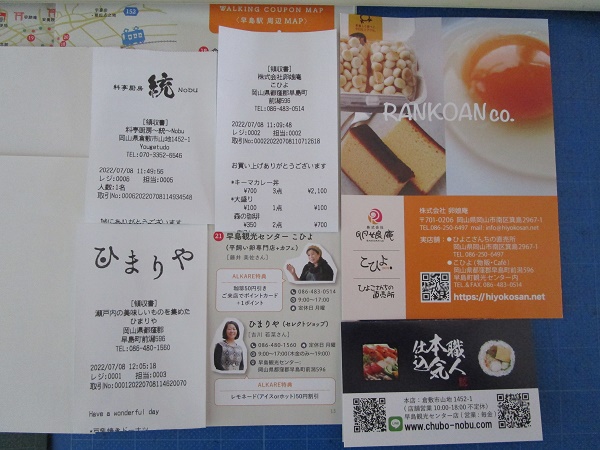 152
WALKING COUPON MAP
〈早島駅 周辺 MAP〉
料亭厨房 統 Nobu
[領収書]
料亭厨房~統~Nobu
岡山県倉敷市山地1452-1
Yougetudo
TEL:070-3352-6546
2022/07/08 11:49:56
レジ:0006 担当:0005
人数:1名
取引No:0006202207081149345​48
誠にありがとうございます
[領収書]
株式会社卵娘庵
こひよ
岡山県都窪郡早島町
前潟596
TEL:086-483-0514
2022/07/08 11:09:48
レジ:0002 担当:0002
取引No:00022022070811071​2618
お買い上げありがとうございます
*キーマカレー丼
¥700 3点 ¥2,100
*大盛り
¥100 1点 ¥100
森の珈琲
¥350 2点 ¥700
ひまりや
[領収書]
瀬戸内の美味しいものを集めた
ひまりや
岡山県都窪郡
早島町前潟596
TEL:086-480-1560
2022/07/08 12:05:18
レジ:0001 担当:0003
取引No:00012022070811452​0070
Have a wonderful day
21 早島観光センター こひよ
(平飼い卵専門店+カフェ)
[藤井 美佐さん]
ALKARE特典
珈琲50円引き
ご来店でポイントカード
+1ポイント
086-483-0514
9:00~17:00
定休日 月曜
ひまりや (セレクトショップ)
086-480-1560 定休日 月曜
9:00~17:00(木金のみ~19:00)
早島観光センター:
岡山県都窪郡早島町前潟596
ALKARE特典
レモネード(アイスorホット)50円割引
RANKOAN co.
株式会社 卵娘庵
こひよ
ひよこさんちの直売所
株式会社 卵娘庵
〒701-0206 岡山県岡山市南区箕島2967-1
TEL.086-250-6497 mail info@hiyokosan.net
実店舗: ひよこさんちの直売所
岡山県岡山市南区箕島2967-1
TEL.086-250-6497
こひよ (物販・Café)
岡山県都窪郡早島町前潟596
早島町観光センター内
TEL&FAX 086-483-0514
https://hiyokosan.net
職人気本仕込
本店:倉敷市山地 1452-1
(店舗営業 10:00-18:00 不定休)
早島観光センター店(営業:毎金)
www.chubo-nobu.com